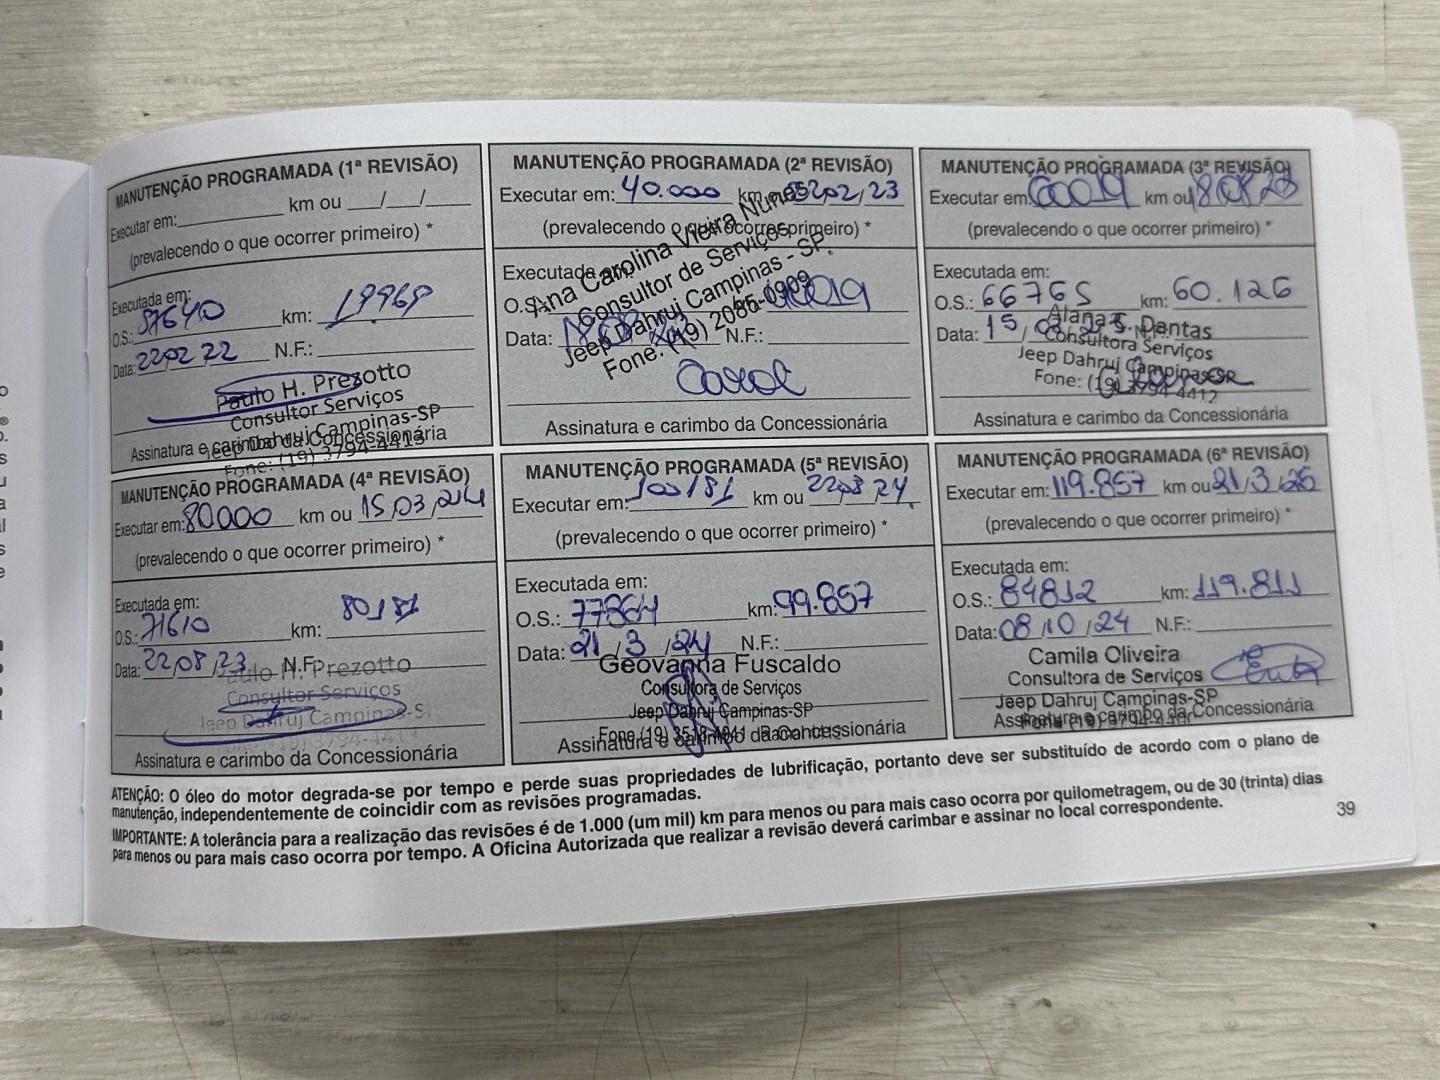 MANUTENÇÃO PROGRAMADA (1ª REVISÃO)
Executar em: km ou / /
(prevalecendo o que ocorrer primeiro) *
Executada em:
O.S.: 57640 km: 19969
Data: 22 02 22 N.F.:
Paulo H. Prezotto
Consultor Serviços
Jeep Dahruj Campinas-SP
Assinatura e carimbo da Concessionária
Fone: (19) 3794-4413
MANUTENÇÃO PROGRAMADA (2ª REVISÃO)
Executar em: 40.000 km ou 22/02/23
(prevalecendo o que ocorrer primeiro) *
Executada em:
O.S.:
Data: N.F.:
Ana Carolina Vieira Nunes
Consultor de Serviços
Jeep Dahruj Campinas - SP
Fone: (19) 2085-0909
Carol
Assinatura e carimbo da Concessionária
MANUTENÇÃO PROGRAMADA (3ª REVISÃO)
Executar em: 60019 km ou 18 08 23
(prevalecendo o que ocorrer primeiro) *
Executada em:
O.S.: 66765 km: 60.126
Data: 15 N.F.:
Alana S. Dantas
Consultora Serviços
Jeep Dahruj Campinas-SP
Fone: (19) 3794-4412
Assinatura e carimbo da Concessionária
MANUTENÇÃO PROGRAMADA (4ª REVISÃO)
Executar em: 80000 km ou 15/03/2024
(prevalecendo o que ocorrer primeiro) *
Executada em:
O.S.: 71610 km: 80181
Data: 22/08/23 N.F.
Paulo H. Prezotto
Consultor Serviços
Jeep Dahruj Campinas-S
Assinatura e carimbo da Concessionária
MANUTENÇÃO PROGRAMADA (5ª REVISÃO)
Executar em: 100181 km ou 22 08 24
(prevalecendo o que ocorrer primeiro) *
Executada em:
O.S.: 77864 km: 99.857
Data: 21/3/24 N.F.:
Geovanna Fuscaldo
Consultora de Serviços
Jeep Dahruj Campinas-SP
Assinatura e carimbo da Concessionária
MANUTENÇÃO PROGRAMADA (6ª REVISÃO)
Executar em: 119.857 km ou 21/3/25
(prevalecendo o que ocorrer primeiro) *
Executada em:
O.S.: 84812 km: 119.811
Data: 08/10/24 N.F.:
Camila Oliveira
Consultora de Serviços
Jeep Dahruj Campinas-SP
Assinatura e carimbo da Concessionária
ATENÇÃO: O óleo do motor degrada-se por tempo e perde suas propriedades de lubrificação, portanto deve ser substituído de acordo com o plano de
manutenção, independentemente de coincidir com as revisões programadas.
IMPORTANTE: A tolerância para a realização das revisões é de 1.000 (um mil) km para menos ou para mais caso ocorra por quilometragem, ou de 30 (trinta) dias
para menos ou para mais caso ocorra por tempo. A Oficina Autorizada que realizar a revisão deverá carimbar e assinar no local correspondente.
39